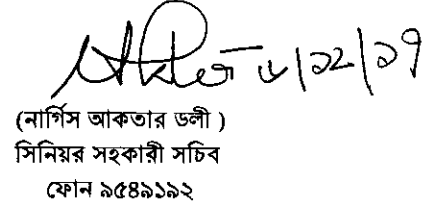 (নার্গিস আকতার ডলী )
সিনিয়র সহকারী সচিব
ফোন ৯৫৪৯১৯২